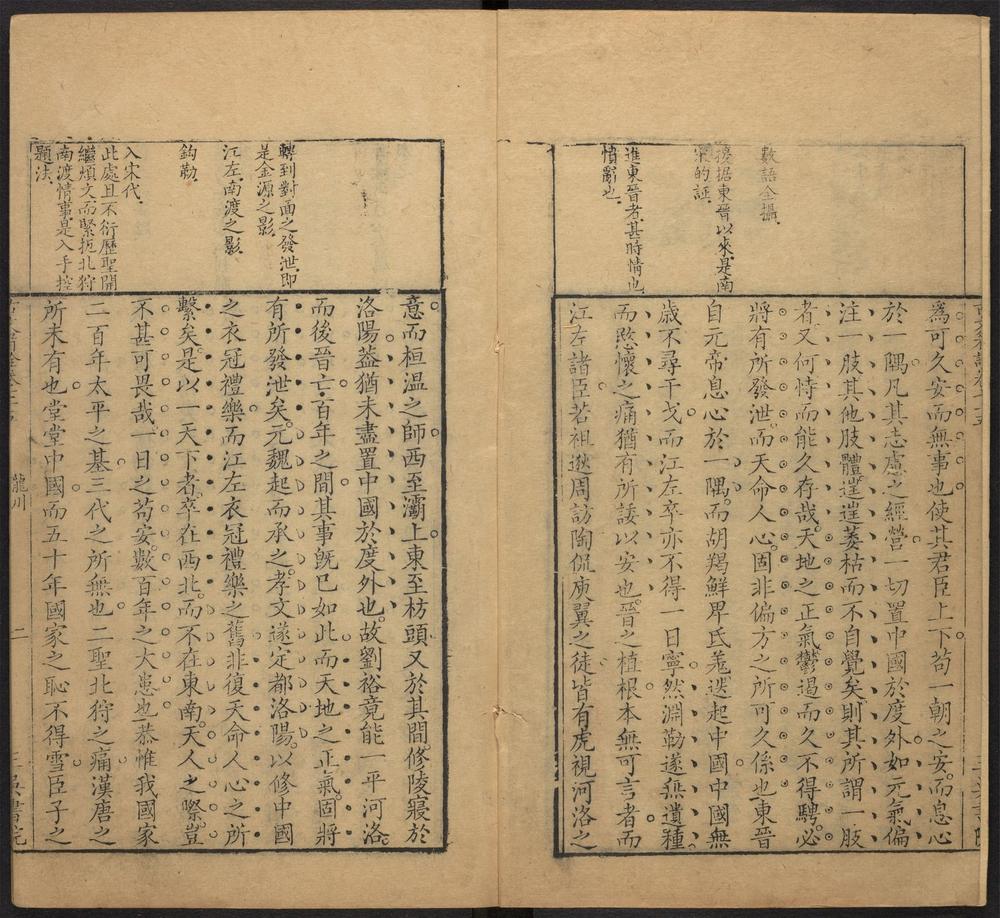 數語全攝
援據東晉以來是南
宋的証
進東晉者甚時情也
憤辭也
為可久安而無事也使其君臣上下苟一朝之安而息心
於一隅凡其志慮之經營一切置中國於度外如元氣偏
注一肢其他肢體往往萎枯而不自覺矣則其所謂一肢
者又何恃而能久存哉天地之正氣鬱遏而久不得騁必
將有所發泄而天命人心固非偏方之所可久係也東晉
自元帝息心於一隅而胡羯鮮卑氐羗迭起中國中國無
歲不尋干戈而江左卒亦不得一日寧然淵勒遂無遺種
而愍懷之痛猶有所諉以安也晉之植根本無可言者而
江左諸臣若祖逖周訪陶侃庾翼之徒皆有虎視河洛之
轉到對面之發泄即
是金源之影
江左南渡之影
鈎勒
入宋代
此處且不衍歷聖開
繼煩文而緊扼北狩
南渡情事是入手控
題法
意而桓温之師西至灞上東至枋頭又於其間修陵寢於
洛陽葢猶未盡置中國於度外也故劉裕竟能一平河洛
而後晉亡百年之間其事旣已如此而天地之正氣固將
有所發泄矣元魏起而承之孝文遂定都洛陽以修中國
之衣冠禮樂而江左衣冠禮樂之舊非復天命人心之所
繫矣是以一天下者卒在西北而不在東南天人之際豈
不甚可畏哉一日之苟安數百年之大患也恭惟我國家
二百年太平之基三代之所無也二聖北狩之痛漢唐之
所未有也堂堂中國而五十年國家之恥不得雪臣子之
龍川
二